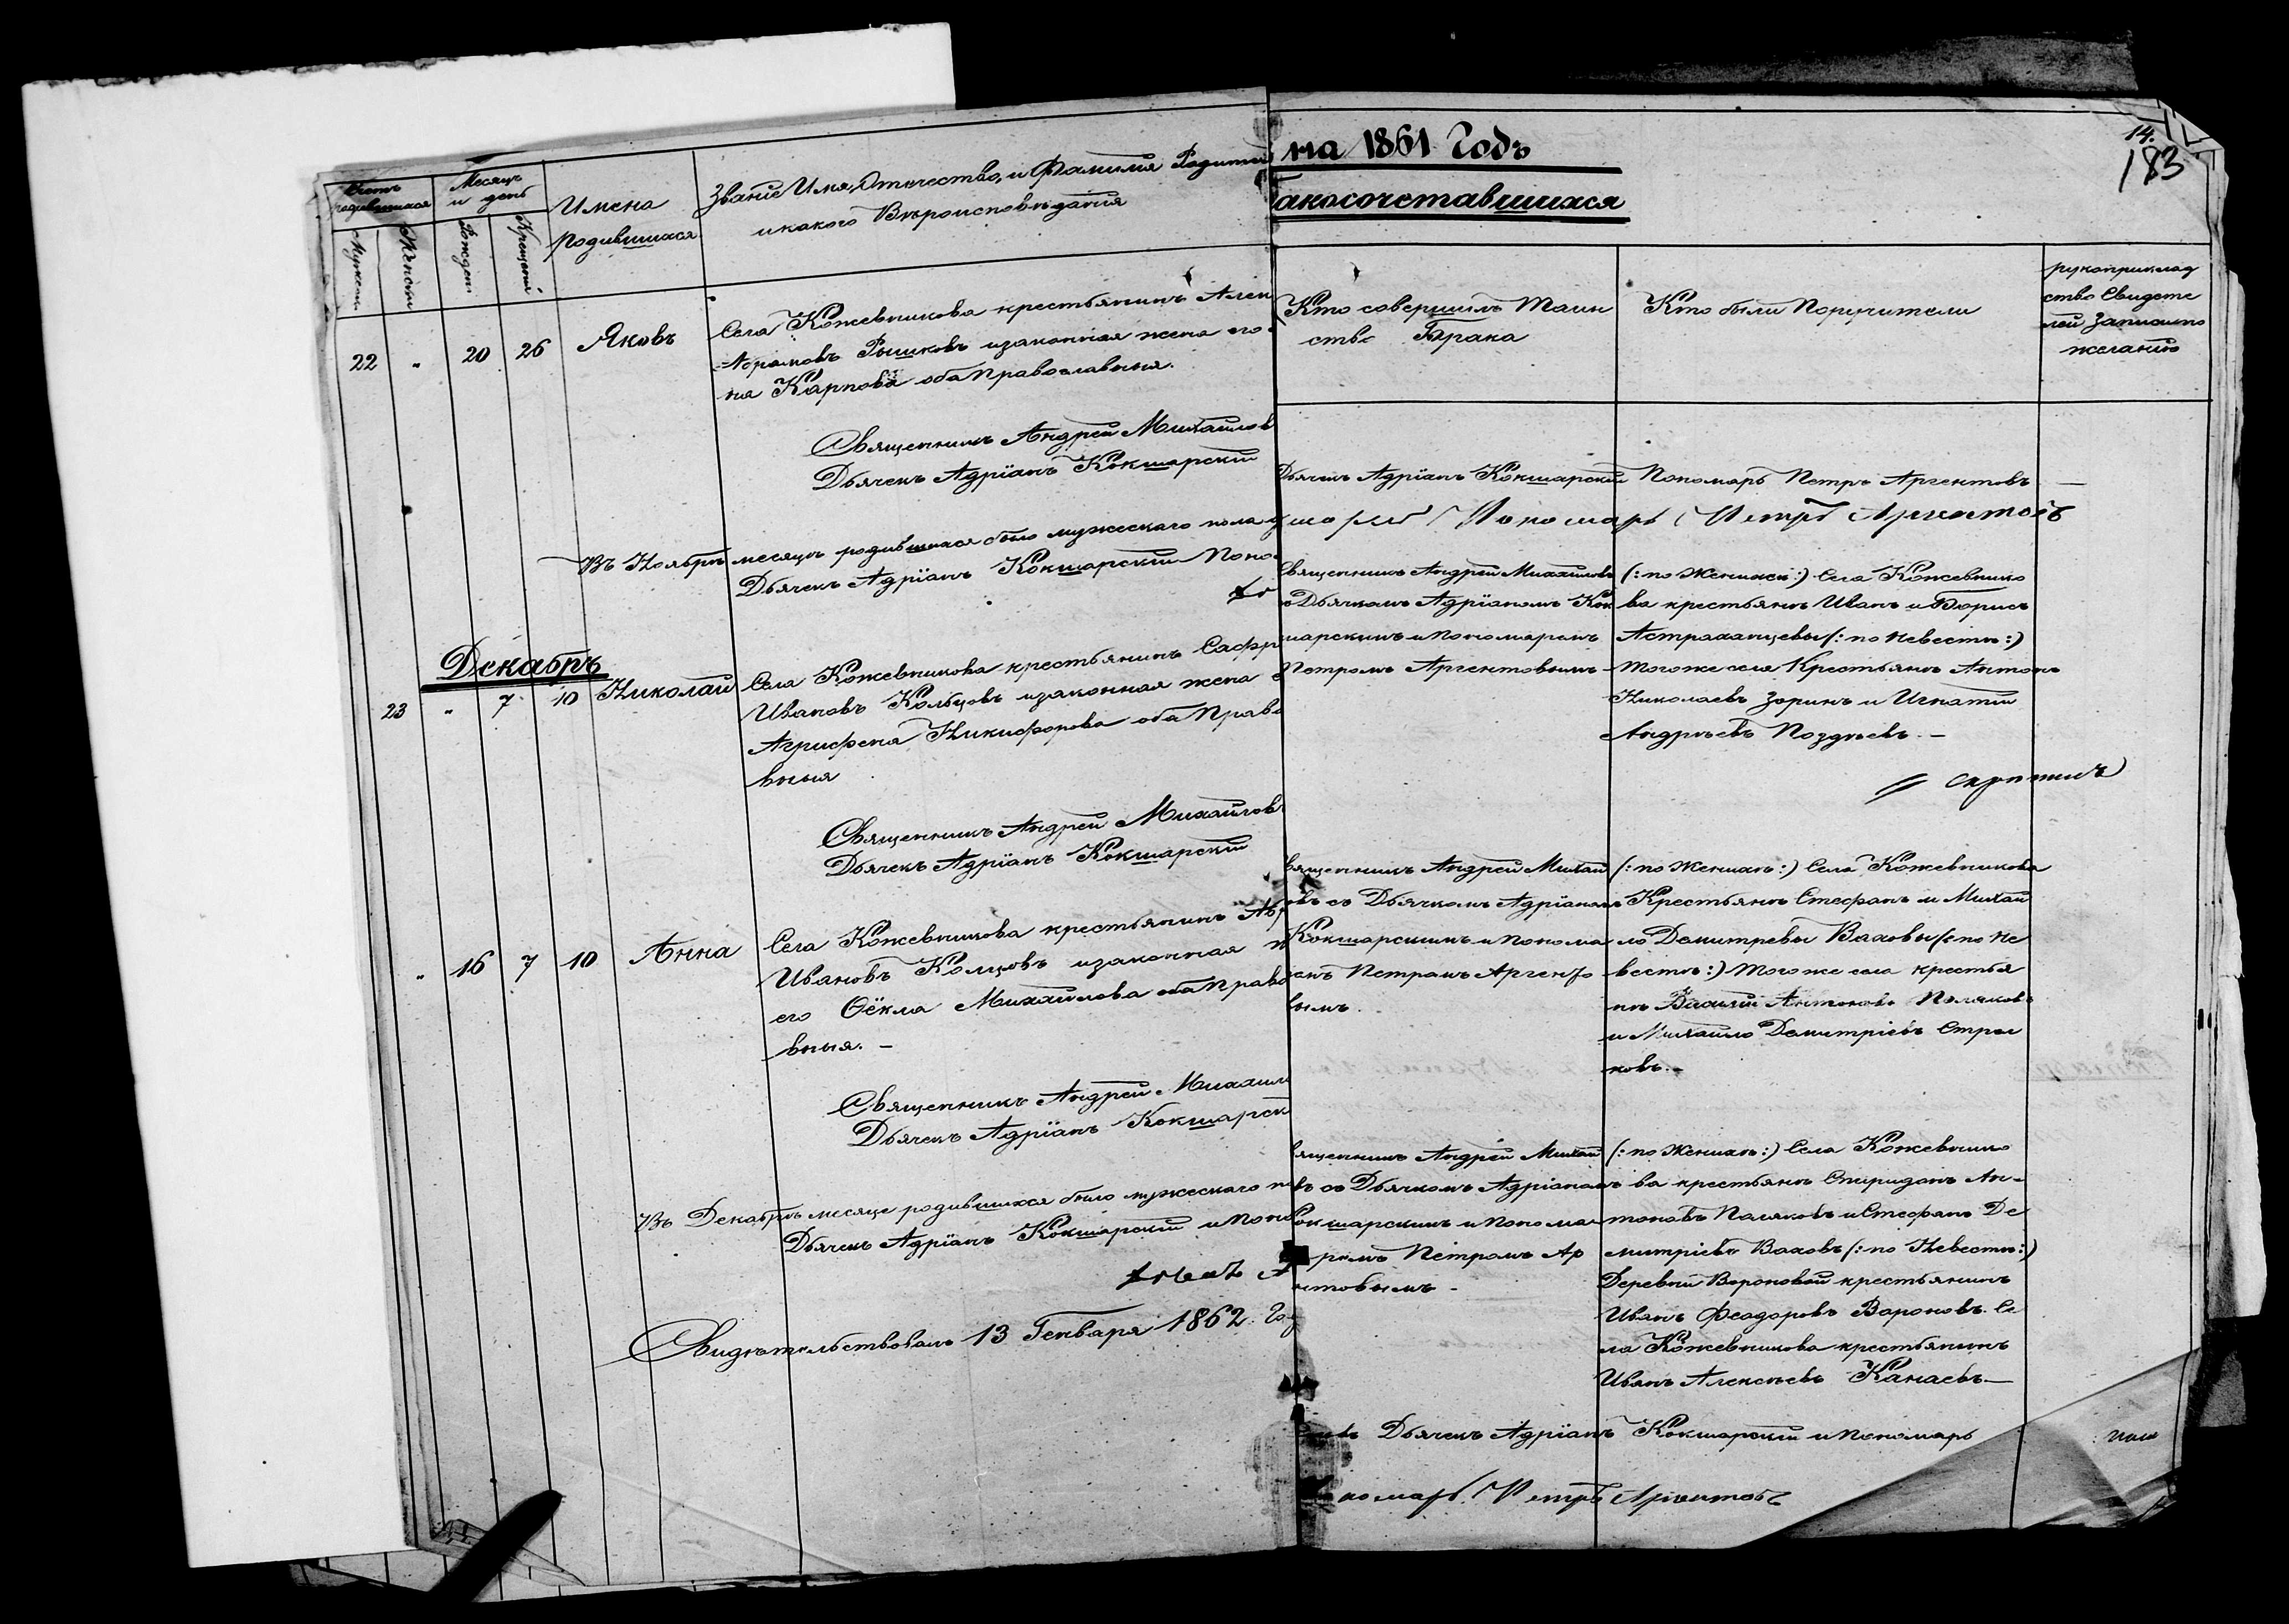 Счетъ родившихся
Месяцъ и день
Имена родившихся
Званіе Имя, Отчество, и Фамилія Родител
и какого Вѣроисповѣданія
Мужеск
Женски
Рожден
Крещенія
22 " 20 26 Яковъ
Села Кожевникова крестьянинъ Алек
Абрамовъ Рышковъ изаконная жена его
на Карпова оба Православныя.
Священникъ Андрей Михайлов
Дьячекъ Адріанъ Кокшарскій
Въ Ноябрѣ месяцѣ родившихся было мужескаго пола
Дьячекъ Адріанъ Кокшарскій Поно
Декабръ
23 " 7 10 Николай
Села Кожевникова крестьянинъ Сафр
Ивановъ Кольцовъ изаконная жена
Агрифена Никифорова оба Право
вныя
Священникъ Андрей Михайлов
Дьячекъ Адріанъ Кокшарскій
" 16 7 10 Анна
Села Кожевникова крестьянинъ Аб
Ивановъ Колцовъ изаконная
его Ѳёкла Михайлова оба Право
вныя. –
Священникъ Андрей Михаил
Дьячекъ Адріанъ Кокшарск
Въ Декабрѣ месяце родившихся было мужескаго
Дьячекъ Адріанъ Кокшарскій и Поно
Свидѣтельствовалъ 13 Генваря 1862 Год
на 1861 Годъ
14.
183
акосочетавшихся
Кто совершилъ Таин
ство Брака
Кто были Поручители
рукоприклад
ство Свидете
лей Записипо
желанію
Дьячекъ Адріанъ Кокшарскій Пономарь Петръ Аргентовъ —
Пономарь Петръ Аргентовъ
Священникъ Андрей Михайловъ
съ Дьячкомъ Адріаномъ Кок
шарскимъ и Пономаремъ
Петромъ Аргентовымъ –
(: по Женихи :) Села Кожевнико
ва крестьянѣ Иванъ и Борисъ
Астраханцевы (: по Невестѣ :)
Тогоже села Крестьянѣ Антонъ
Николаевъ Зоринъ и Игнатій
Андрѣевъ Позднѣевъ. –
вященникъ Андрей Михай
овъ съ Дьячкомъ Адріаномъ
Кокшарскимъ и Понома
емъ Петромъ Арген
вымъ.
(: по Женихѣ :) Села Кожевникова
Крестьянѣ Стефанъ и Михай
ло Димитревы Ваховы (: по Не
вестѣ :) Тогоже села крестья
нѣ Василій Антоновъ Поляковъ
и Михайло Димитріевъ Стрел
ковъ. –
вященникъ Андрей Михай
въ съ Дьячкомъ Адріаномъ
Кокшарскимъ и Понома
ремъ Петромъ Ар
нтовымъ –
(: по Женихѣ :) Села Кожевнико
ва крестьянѣ Спиридонъ Ан–
тоновъ Поляковъ и Стефанъ Ди
митріевъ Ваховъ (: по Невестѣ :)
Деревни Вороновой крестьянинъ
Иванъ Феодоровъ Вороновъ. Се
ла Кожевникова крестьянинъ
Иванъ Алексѣевъ Канаевъ —
Дьячекъ Адріанъ Кокшарскій и Пономарь
номарь Петръ Аргентовъ